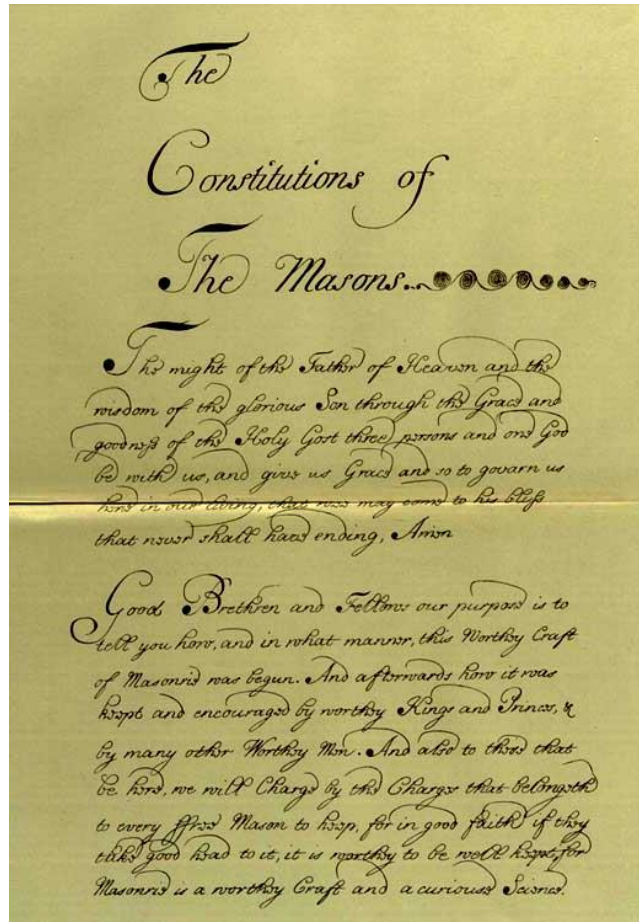 The
Constitutions of
The Masons..
The might of the Father of Heaven and the
wisdom of the glorious Son through the Grace and
goodness of the Holy Gost three persons and one God
be with us, and give us Grace and so to govarn us
here in our living, that wee may come to his bliss
that never shall have ending, Amen
Good Brethren and Fellows our purpose is to
tell you how, and in what manner, this Worthey Craft
of Masonrie was begun. And afterwards how it was
keept and encouraged by worthey Kings and Princes, &
by many other Worthey Men. And also to these that
be here, we will Charge by the Charges that belongeth
to every ffree Mason to keep, for in good faith if they
take good head to it, it is worthey to be well keept, for
Masonrie is a worthey Craft and a curiouse Science.